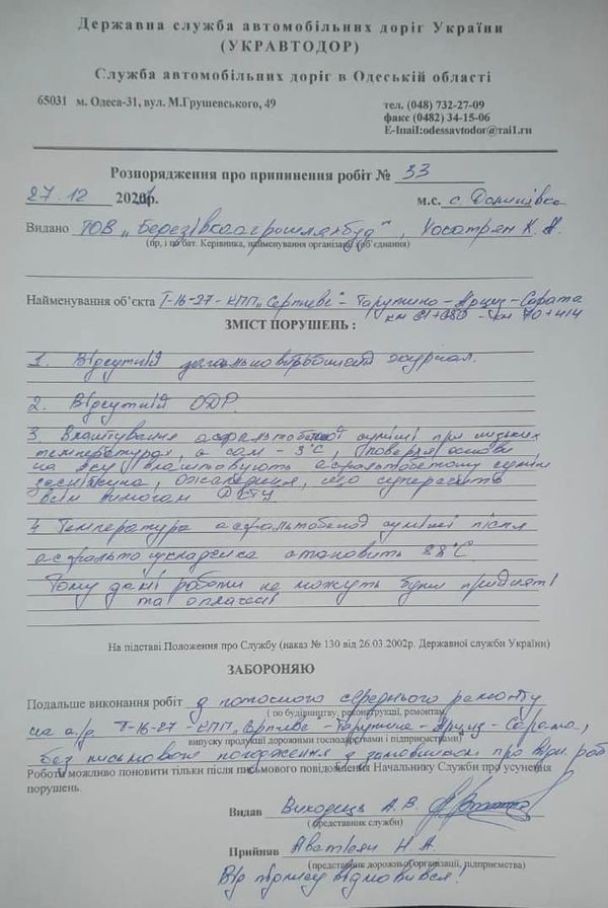 Державна служба автомобільних доріг України
(УКРАВТОДОР)
Служба автомобільних доріг в Одеській області
65031 м. Одеса-31, вул. М.Грушевського, 49
тел. (048) 732-27-09
факс (0482) 34-15-06
E-Inail:odessavtodor@rai1.ru
Розпорядження про припинення робіт № 33
27.12 202 р.
м.с. с.
Видано ТОВ „Березівкаагрошляхбуд",
(пр, і по бат. Керівника, найменування організації (об'єднання)
Найменування об'єкта Т-16-27-КПП„Серпневе"-Тарутино-Арциз-Сарата
км 70+414
ЗМІСТ ПОРУШЕНЬ :
1. Відсутній журнал.
2. Відсутній ОДР.
3. Влаштування асфальтобетонної суміші при низьких
температурах, а сам - 3°С, (поверхня основи
на яку влаштовують асфальтобетонну суміш
засніжена, що суперечить
всім вимогам ДСТУ
4 Температура асфальтобетонної суміші після
асфальтоукладчика становить 88°С.
Тому дані роботи не можуть бути прийняті
та оплачені
На підставі Положення про Службу (наказ № 130 від 26.03.2002р. Державної служби України)
ЗАБОРОНЯЮ
Подальше виконання робіт з поточного середнього ремонту
( по будівництву, реконструкції, ремонтам,
на а/д Т-16-27-КПП„Серпневе"-Тарутино-Арциз-Сарата,
випуску продукції дорожними господарствами і підприємствами)
без письмового погодження з замовником про вик. робіт
Роботи можливо поновити тільки після письмового повідомлення Начальнику Служби про усунення
порушень.
Видав А.В.
( представник служби)
Прийняв Н.А.
(представник дорожньої організації, підприємства)
Від підпису відмовився!